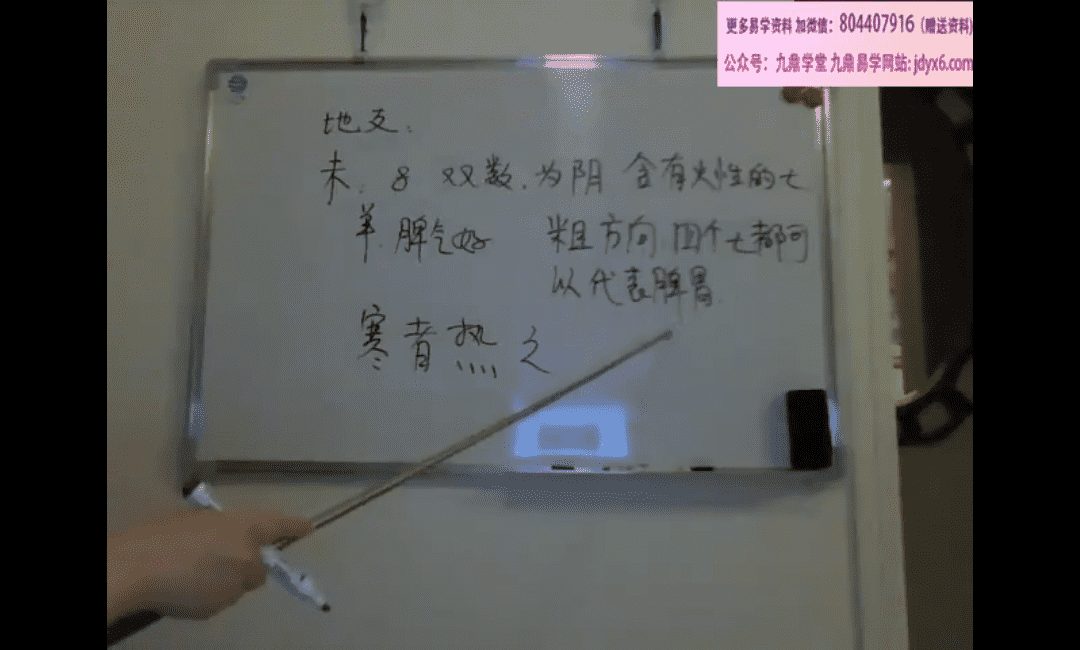 更多易学资料 加微信：804407916（赠送资料)
公众号：九鼎学堂 九鼎易学网站: jdyx6.com
地支：
未. 8 双数.为阴 含有火性的土
羊.脾气好 粗方向 四个土都可
以代表脾胃.
寒者热之